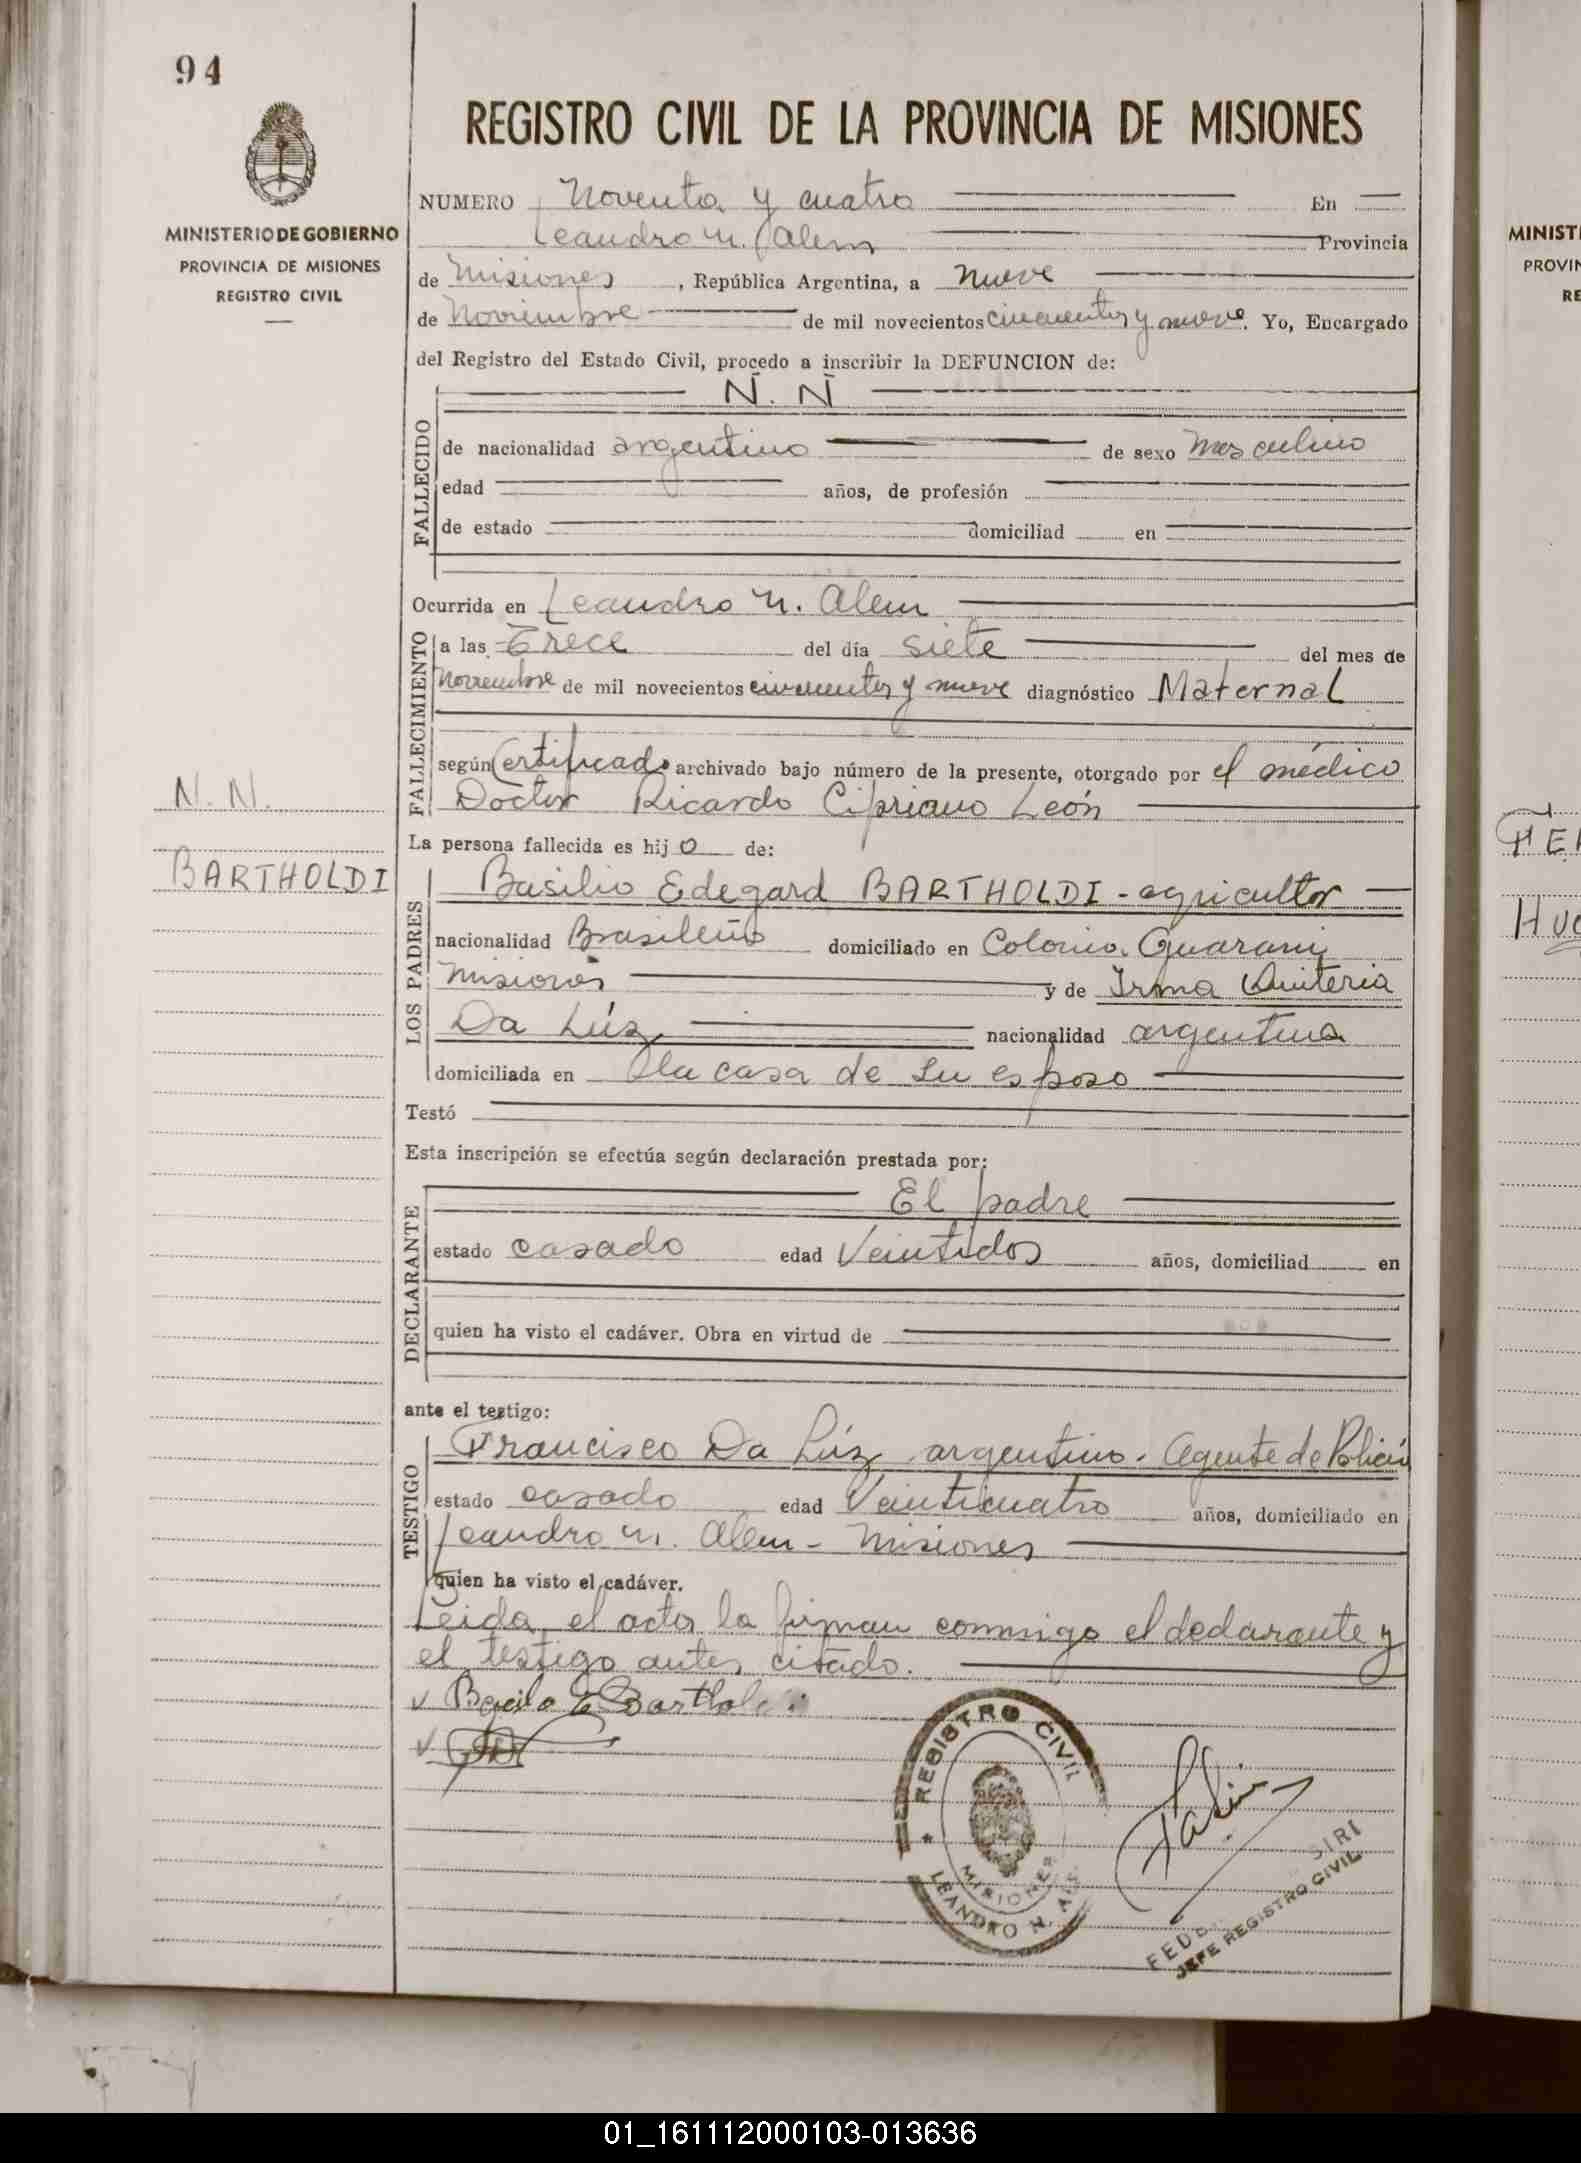 94
REGISTRO CIVIL DE LA PROVINCIA DE MISIONES
MINISTERIO DE GOBIERNO
PROVINCIA DE MISIONES
REGISTRO CIVIL
NUMERO Noventa y cuatro En
Leandro N. Alem Provincia
de Misiones, República Argentina, a nueve
de Noviembre de mil novecientos cincuenta y nueve. Yo, Encargado
del Registro del Estado Civil, procedo a inscribir la DEFUNCION de:
N. N
FALLECIDO
de nacionalidad argentino de sexo masculino
edad años, de profesión
de estado domiciliad en
Ocurrida en Leandro N. Alem
FALLECIMIENTO
a las Trece del día siete del mes de
Noviembre de mil novecientos cincuenta y nueve diagnóstico Maternal
según Certificado archivado bajo número de la presente, otorgado por el médico
Doctor Ricardo Cipriano León
N. N.
BARTHOLDI
La persona fallecida es hijo de:
LOS PADRES
Basilio Edegard BARTHOLDI - agricultor
nacionalidad Brasileño domiciliado en Colonia Guarani
Misiones y de Irma Quiteria
Da Lúz nacionalidad argentina
domiciliada en la casa de su esposo
Testó
Esta inscripción se efectúa según declaración prestada por:
DECLARANTE
El padre
estado casado edad Veintidos años, domiciliad en
quien ha visto el cadáver. Obra en virtud de
ante el testigo:
TESTIGO
Francisco Da Lúz argentino. Agente de Policía
estado casado edad Veinticuatro años, domiciliado en
Leandro N. Alem - Misiones
quien ha visto el cadáver.
Leida el acta la firman conmigo el declarante y
el testigo antes citado.
Basilo E Barthol
REGISTRO CIVIL
MISIONES
LEANDRO N. ALEM
SIRI
JEFE REGISTRO CIVIL
MINISTE
PROVIN
RE
HUG
01_161112000103-013636